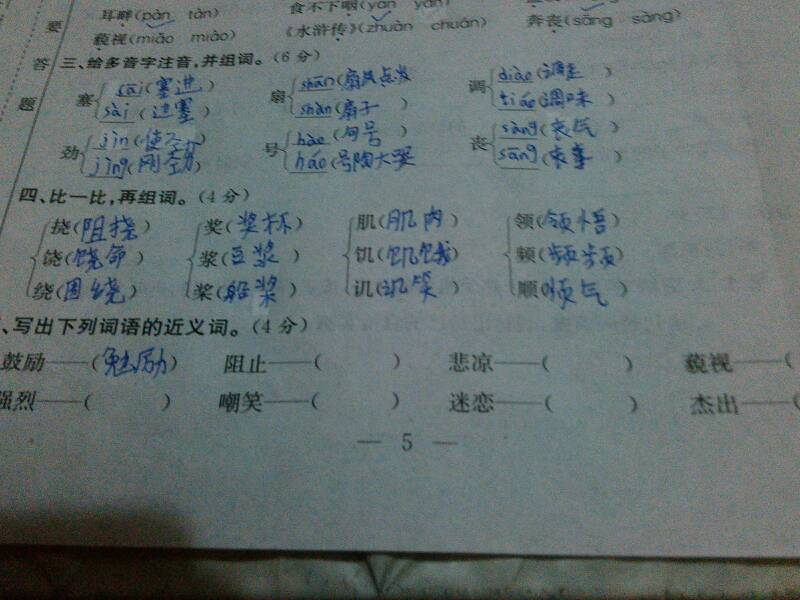 耳畔(pàn tàn) 食不下咽(yàn yān)
要 藐视(miǎo miào) 《水浒传》(zhuàn chuán) 奔丧(sāng sàng)
答 三、给多音字注音,并组词。(6分)
题 塞 sāi(塞进) 扇 shān(扇风点火) 调 diào(调走)
sài(边塞) shàn(扇子) tiáo(调味)
劲 jìn(使劲) 号 hào(句号) 丧 sàng(丧气)
jìng(刚劲) háo(号陶大哭) sāng(丧事)
四、比一比,再组词。(4分)
挠(阻挠) 奖(奖杯) 肌(肌肉) 领(领悟)
饶(饶命) 浆(豆浆) 饥(饥饿) 频(频频)
绕(围绕) 桨(船桨) 讥(讥笑) 顺(顺气)
、写出下列词语的近义词。(4分)
鼓励——(勉励) 阻止——( ) 悲凉——( ) 藐视——(
强烈——( ) 嘲笑——( ) 迷恋——( ) 杰出——(
— 5 —